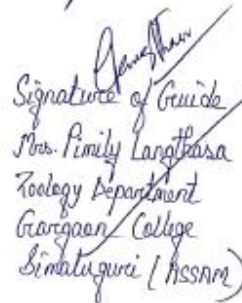 Signature of Guide
Mrs. Pimily Langthasa
Zoology Department
Gargaon College
Simaluguri (ASSAM)